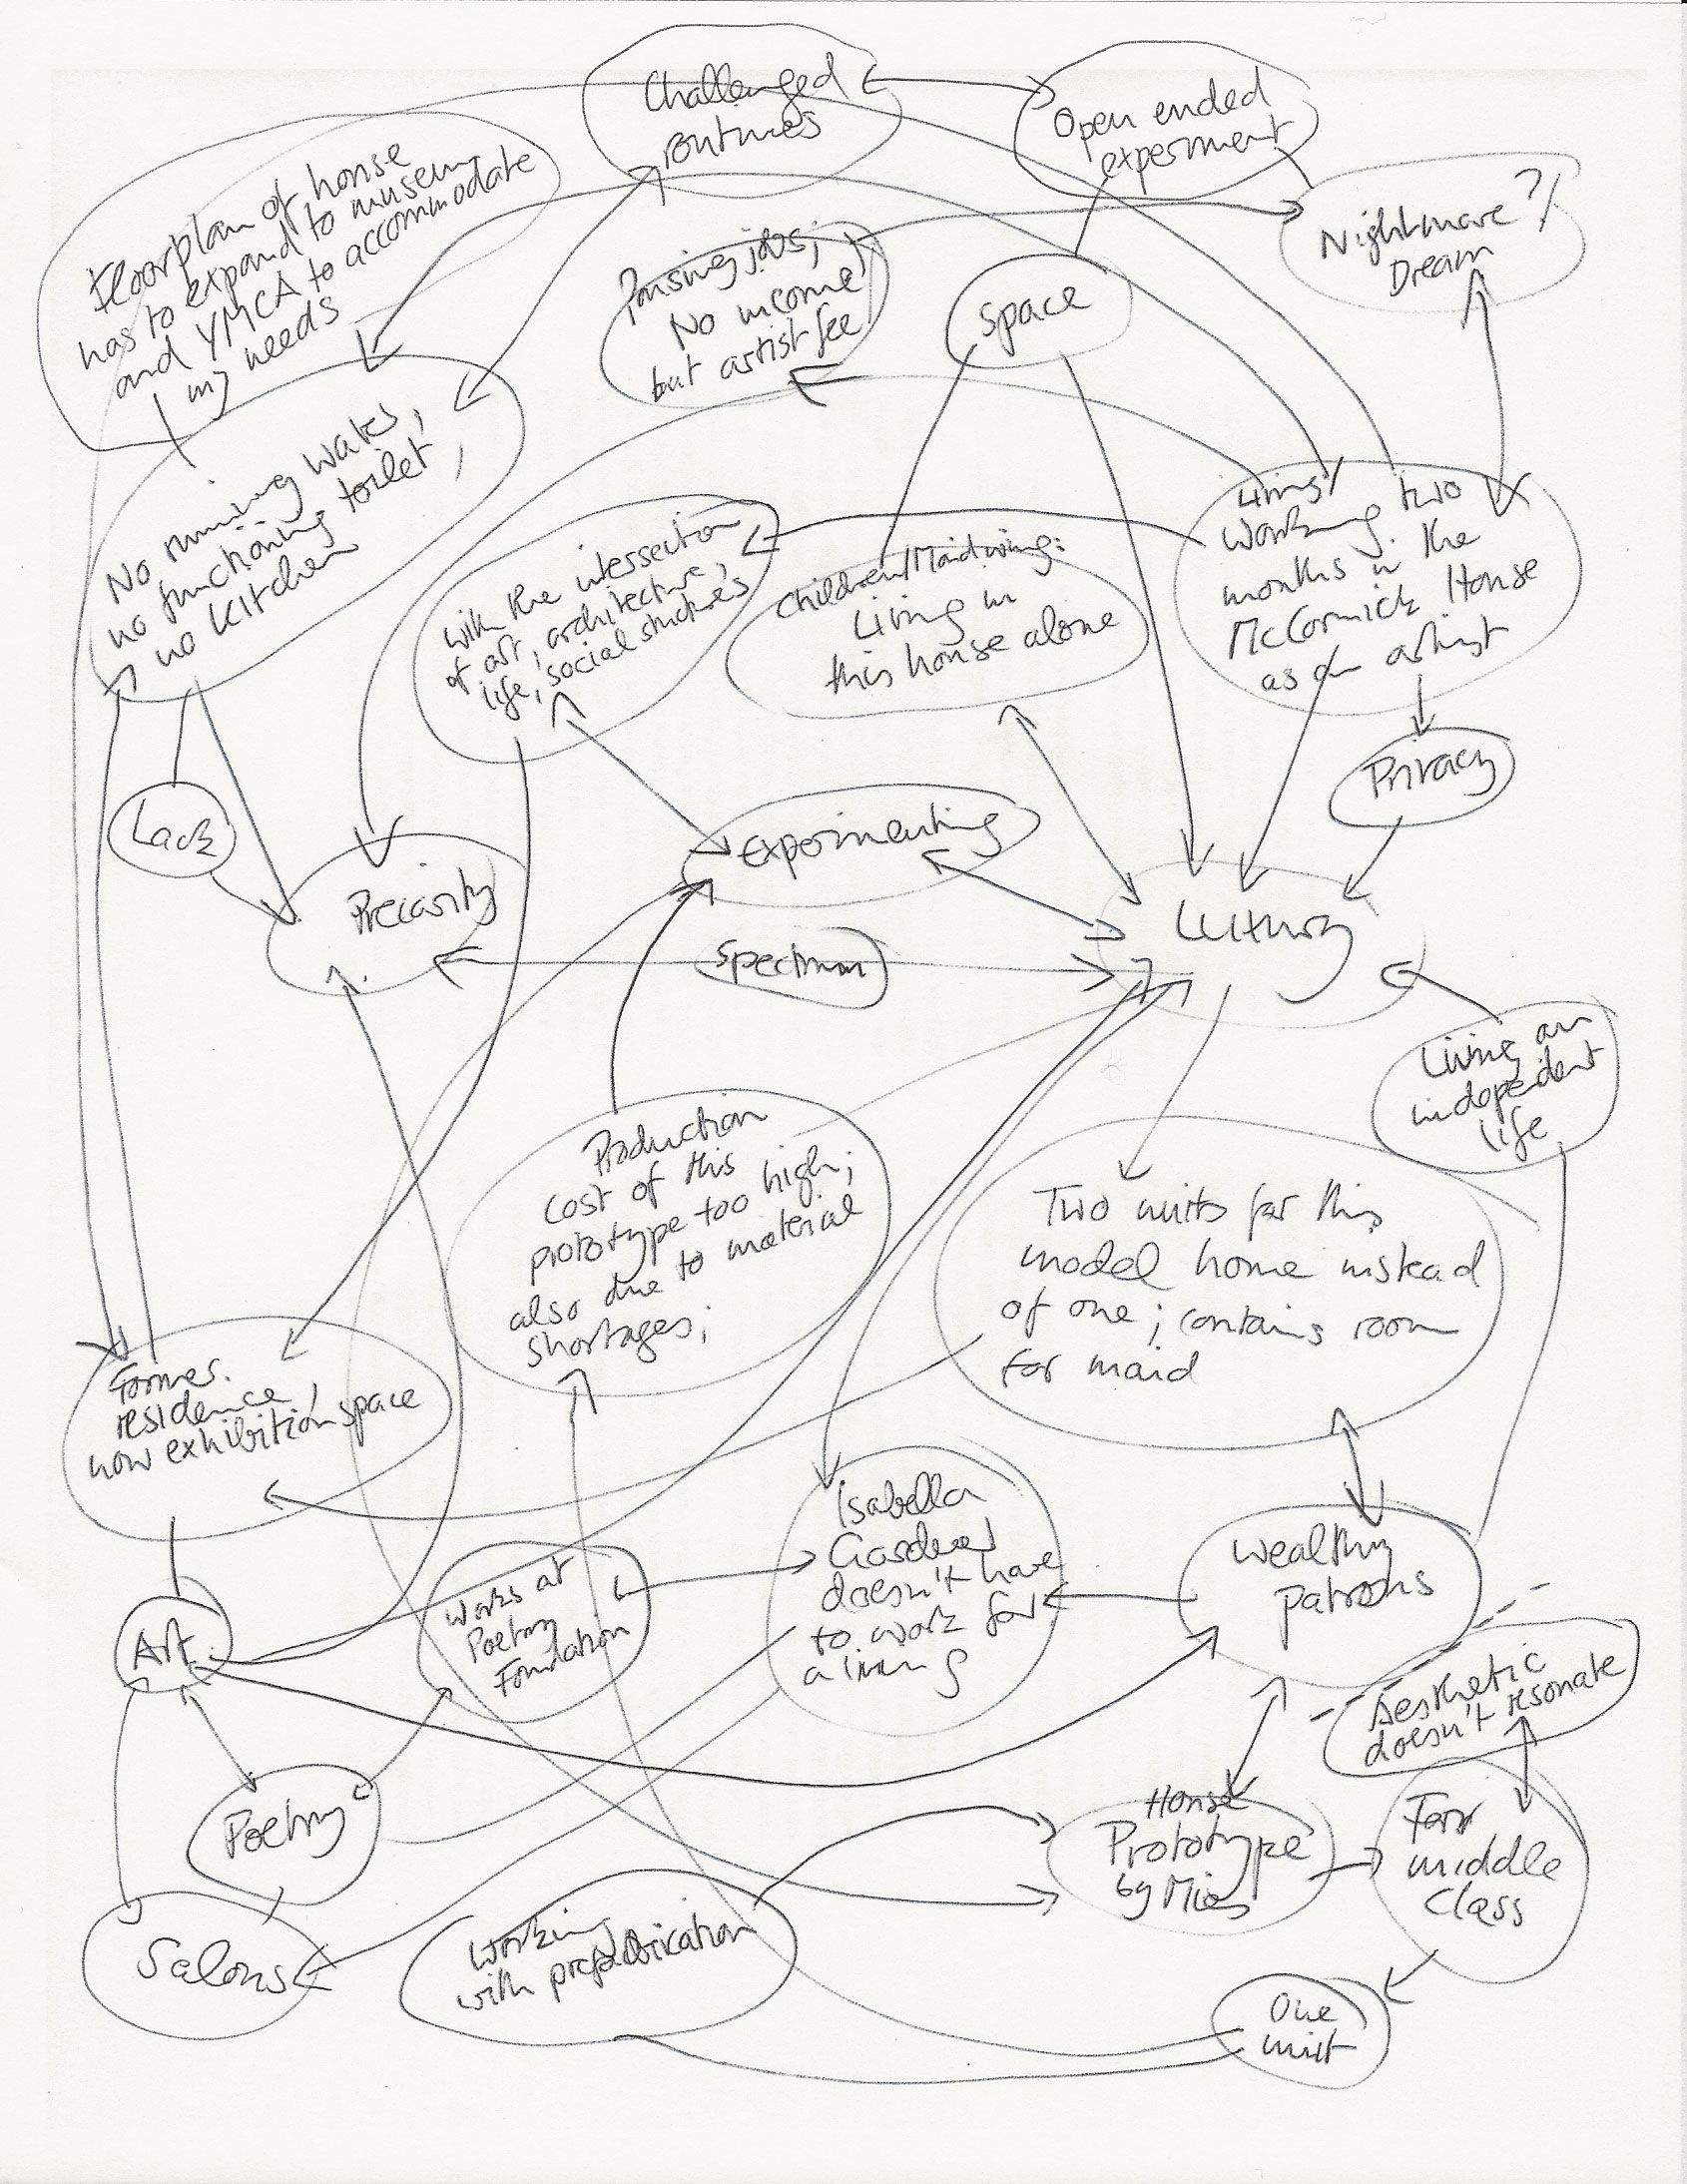 Challenged
routines
Open ended
experiment
Nightmare?/
Dream
Floorplan of house
has to expand to museum
and YMCA to accommodate
my needs
Pausing jobs;
No income
but artist fee
Space
No running water,
no functioning toilet,
no kitchen
with the intersection
of art, architecture,
life, social structures
Children/Maid wing:
Living in
this house alone
Living/
Working two
months in the
McCormick House
as an artist
Privacy
Lack
Precarity
Experimenting
Luxury
Spectrum
Living an
indopendent
life
Production
cost of this
prototype too high;
also due to material
shortages;
Two units for this
model home instead
of one; contains room
for maid
Former
residence/
now exhibition space
Isabella
Gardner
doesn't have
to work for
a living
Wealthy
patrons
Works at
Poetry
Foundation
Art
Aesthetic
doesn't resonate
Poetry
House
Prototype
by Mies
For
middle
class
Salons
Working
with prefabrication
One
unit